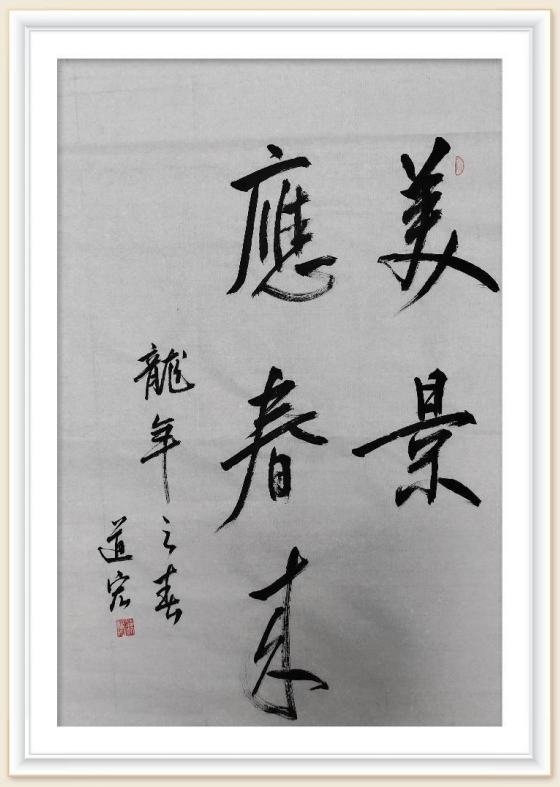 美景
應春来
龍年之春
道宏